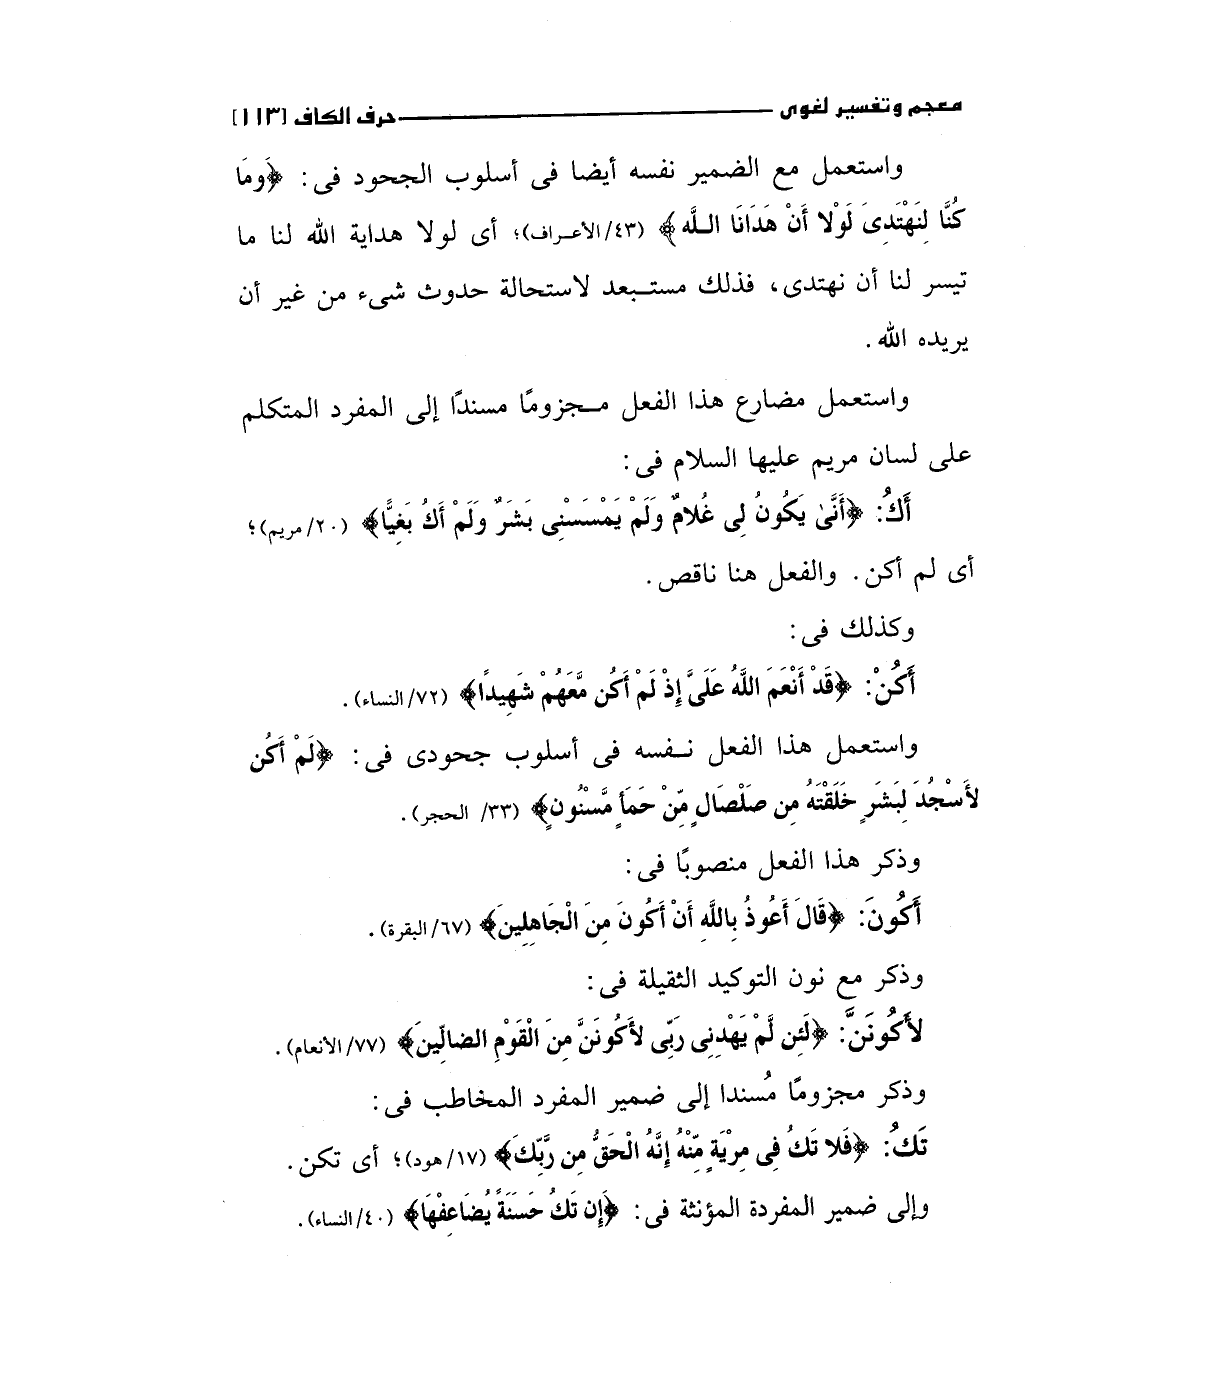 معجم وتفسير لغوى ــــــ حرف الكاف [١١٣]
واستعمل مع الضمير نفسه أيضا فى أسلوب الجحود فى: ﴿وَمَا
كُنَّا لِنَهْتَدِىَ لَوْلا أَنْ هَدَانَا اللَّه﴾ (٤٣/الأعراف)؛ أى لولا هداية الله لنا ما
تيسر لنا أن نهتدى، فذلك مستبعد لاستحالة حدوث شىء من غير أن
يريده الله.
واستعمل مضارع هذا الفعل مجزومًا مسندًا إلى المفرد المتكلم
على لسان مريم عليها السلام فى:
أَكُ: ﴿أَنَّىٰ يَكُونُ لِى غُلامٌ وَلَمْ يَمْسَسْنِى بَشَرٌ وَلَمْ أَكُ بَغِيًّا﴾ (٢٠/مريم)؛
أى لم أكن. والفعل هنا ناقص.
وكذلك فى:
أَكُنْ: ﴿قَدْ أَنْعَمَ اللَّهُ عَلَىَّ إِذْ لَمْ أَكُن مَّعَهُمْ شَهِيدًا﴾ (٧٢/النساء).
واستعمل هذا الفعل نفسه فى أسلوب جحودى فى: ﴿لَمْ أَكُن
لأَسْجُدَ لِبَشَرٍ خَلَقْتَهُ مِن صَلْصَالٍ مِّنْ حَمَأٍ مَّسْنُونٍ﴾ (٣٣/ الحجر).
وذكر هذا الفعل منصوبًا فى:
أَكُونَ: ﴿قَالَ أَعُوذُ بِاللَّهِ أَنْ أَكُونَ مِنَ الْجَاهِلِينَ﴾ (٦٧/البقرة).
وذكر مع نون التوكيد الثقيلة فى:
لأَكُونَنَّ: ﴿لَئِن لَّمْ يَهْدِنِى رَبِّى لأَكُونَنَّ مِنَ الْقَوْمِ الضالِّينَ﴾ (٧٧/الأنعام).
وذكر مجزومًا مُسندا إلى ضمير المفرد المخاطب فى:
تَكُ: ﴿فَلا تَكُ فِى مِرْيَةٍ مِّنْهُ إِنَّهُ الْحَقُّ مِن رَّبِّكَ﴾ (١٧/هود)؛ أى تكن.
وإلى ضمير المفردة المؤنثة فى: ﴿إِن تَكُ حَسَنَةً يُضَاعِفْهَا﴾ (٤٠/النساء).